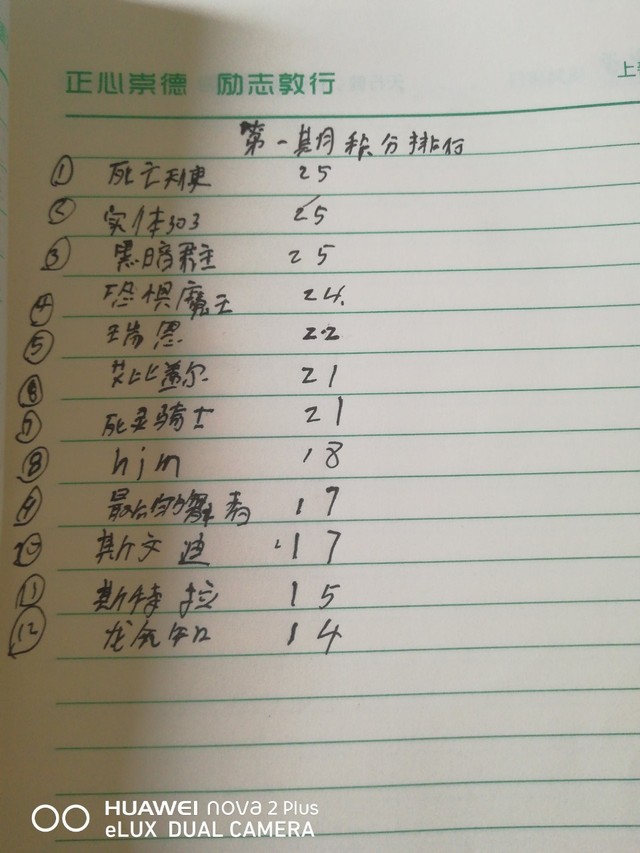 正心崇德 励志敦行
上
第一期月积分排行
① 死亡天使 25
② 实体303 25
③ 黑暗君主 25
④ 恐惧魔王 24
⑤ 瑞恩 22
⑥ 艾比盖尔 21
⑦ 死灵骑士 21
⑧ him 18
⑨ 最后的舞者 17
⑩ 斯文迪 17
⑪ 斯特拉 15
⑫ 14
HUAWEI nova 2 Plus
eLUX DUAL CAMERA